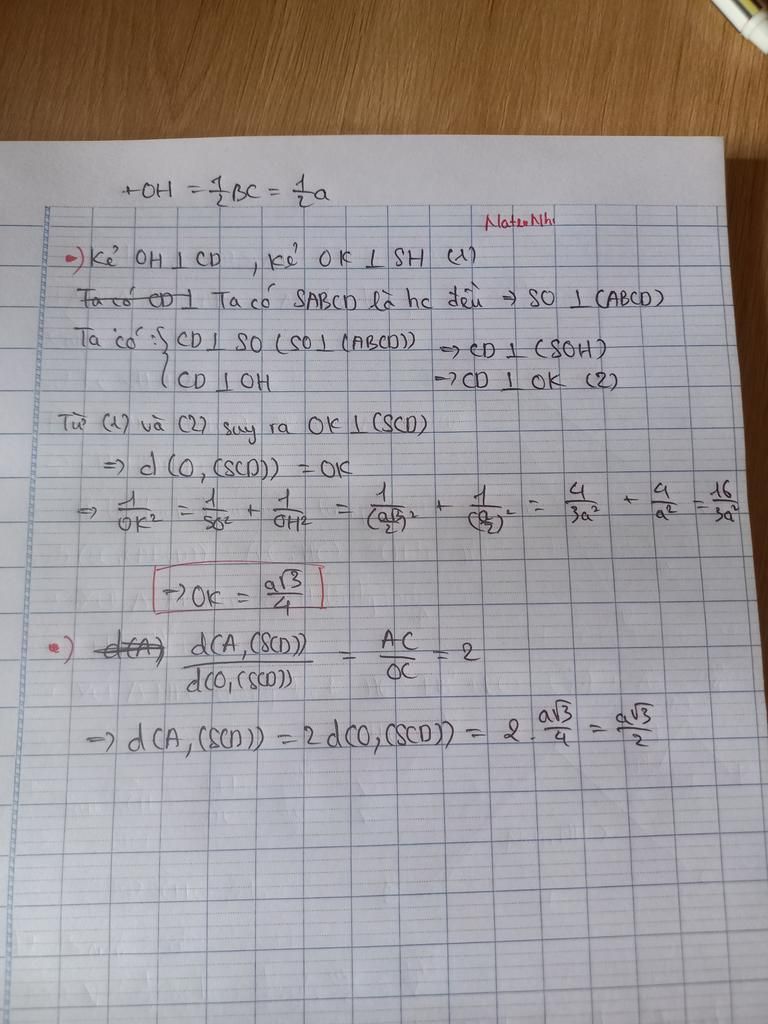 +OH = 1/2 BC = 1/2 a
•) Kẻ OH ⊥ CD , kẻ OK ⊥ SH (1)
Ta có CD ⊥ Ta có SABCD là hc đều → SO ⊥ (ABCD)
Ta có : { CD ⊥ SO (SO ⊥ (ABCD)) → CD ⊥ (SOH)
CD ⊥ OH → CD ⊥ OK (2)
Từ (1) và (2) suy ra OK ⊥ (SCD)
⇒ d(O, (SCD)) = OK
⇒ 1/OK² = 1/SO² + 1/OH² = 1/(a√3/2)² + 1/(a/2)² = 4/3a² + 4/a² = 16/3a²
→ OK = a√3/4
•) d(A) d(A, (SCD))/d(O, (SCD)) = AC/OC = 2
⇒ d(A, (SCD)) = 2 d(O, (SCD)) = 2 . a√3/4 = a√3/2